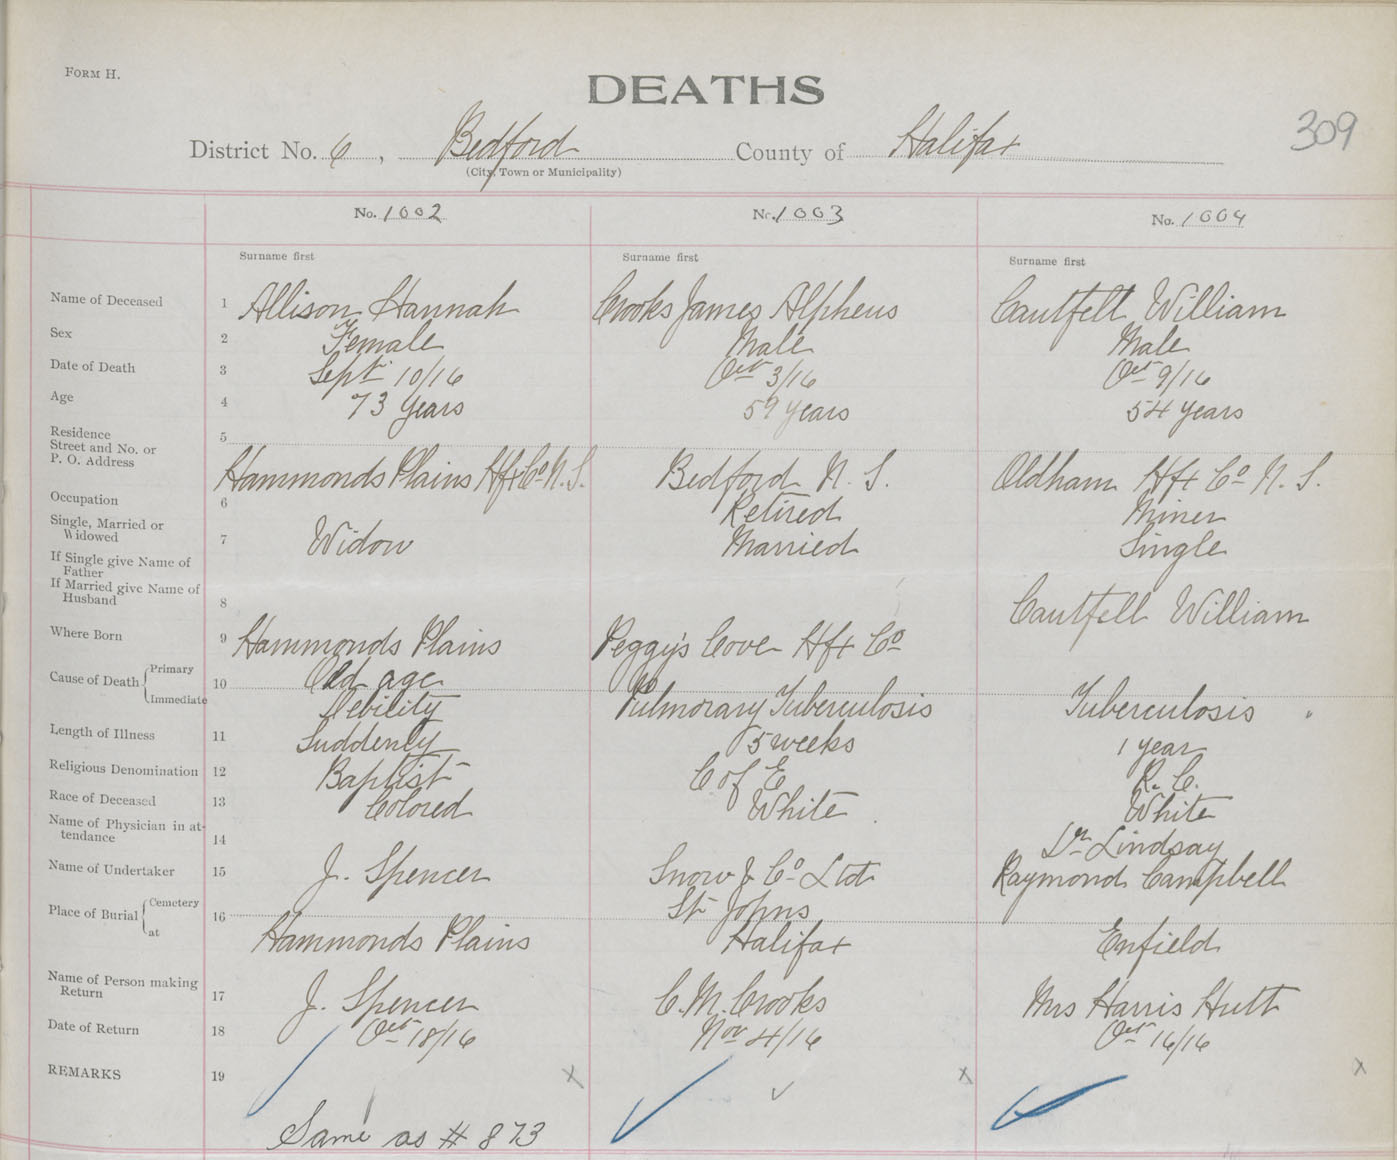 FORM H.
DEATHS
309
District No. 6, Bedford County of Halifax
(City, Town or Municipality)
No. 1002 No. 1003 No. 1004
Surname first Surname first Surname first
Name of Deceased 1 Allison Hannah Crooks James Alpheus Cautfell William
Sex 2 Female Male Male
Date of Death 3 Sept 10/16 Oct 3/16 Oct 9/16
Age 4 73 Years 59 Years 54 Years
Residence
Street and No. or 5
P. O. Address Hammonds Plains Hfx Co N. S. Bedford N. S. Oldham Hfx Co N. S.
Occupation 6 Retired Miner
Single, Married or
Widowed 7 Widow Married Single
If Single give Name of
Father
If Married give Name of
Husband 8 Cautfell William
Where Born 9 Hammonds Plains Peggy's Cove Hfx Co
Cause of Death Primary 10 Old age
Immediate Debility Pulmorary Tuberculosis Tuberculosis "
Length of Illness 11 Suddenly 5 weeks 1 year
Religious Denomination 12 Baptist C of E R. C.
Race of Deceased 13 Colored White White
Name of Physician in at-
tendance 14 Dr Lindsay
Name of Undertaker 15 J. Spencer Snow & Co Ltd Raymond Campbell
Place of Burial Cemetery 16 St Johns
at Hammonds Plains Halifax Enfield
Name of Person making
Return 17 J. Spencer C. M. Crooks Mrs Harris Hutt
Date of Return 18 Oct 18/16 Nov 4/16 Oct 16/16
REMARKS 19 x x x
Same as # 873